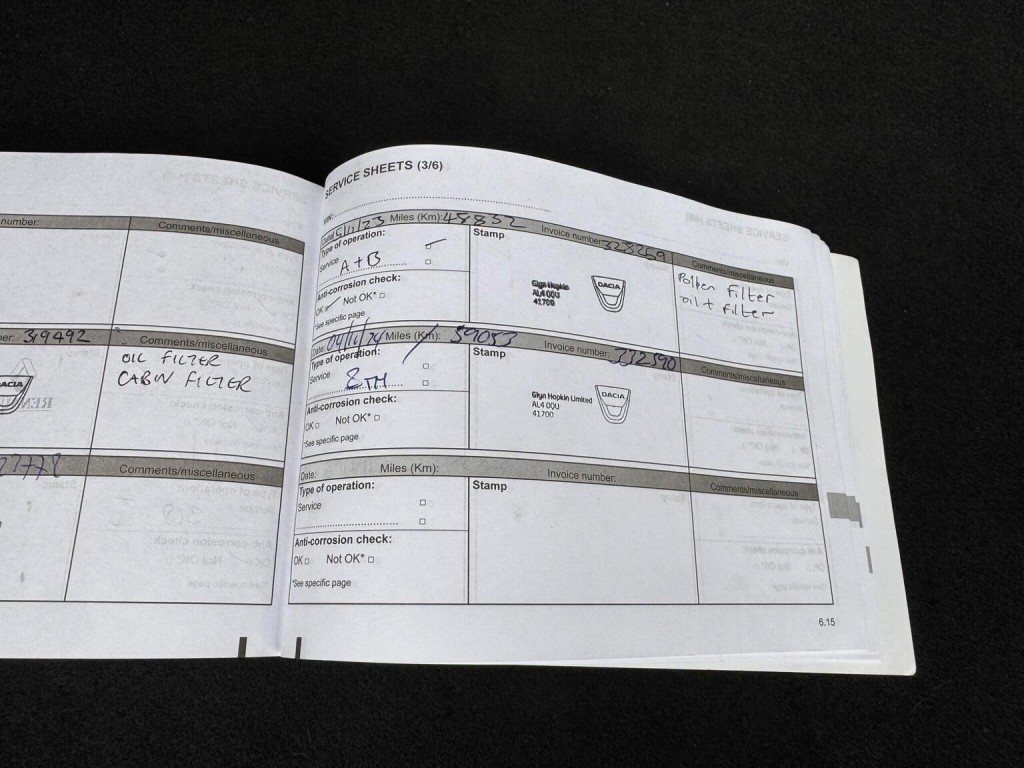 number:
Comments/miscellaneous
ber: 319492
Comments/miscellaneous
OIL FILTER
CABIN FILTER
DACIA
REN
Comments/miscellaneous
SERVICE SHEETS (3/6)
VIN:
Date: 5/11/23 Miles (Km): 48852 Invoice number: 328269 Comments/miscellaneous
Type of operation:
Service
A+B
Stamp
Pollen filter
oil + filter
Anti-corrosion check:
OK Not OK* □
*See specific page
Glyn Hopkin
AL4 0QU
41700
DACIA
Date: 04/11/24 Miles (Km): 59053 Invoice number: 332590 Comments/miscellaneous
Type of operation:
Service □
8TH □
Stamp
Anti-corrosion check:
OK □ Not OK* □
*See specific page
Glyn Hopkin Limited
AL4 0QU
41700
DACIA
Date: Miles (Km): Invoice number: Comments/miscellaneous
Type of operation:
Service □
□
Stamp
Anti-corrosion check:
OK □ Not OK* □
*See specific page
6.15